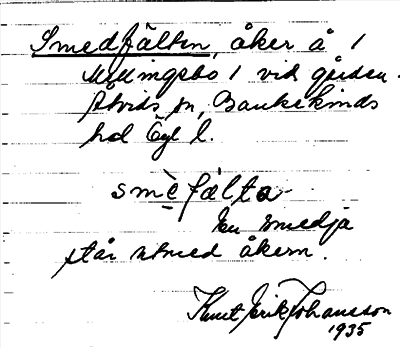 Smedfälten, åker å 1
Millingsbo 1 vid gården.
Åtvids sn, Bankekinds
hd Ögl l.
smèfälta
En smedja
står utmed åkern.
Knut Erik Johansson
1935